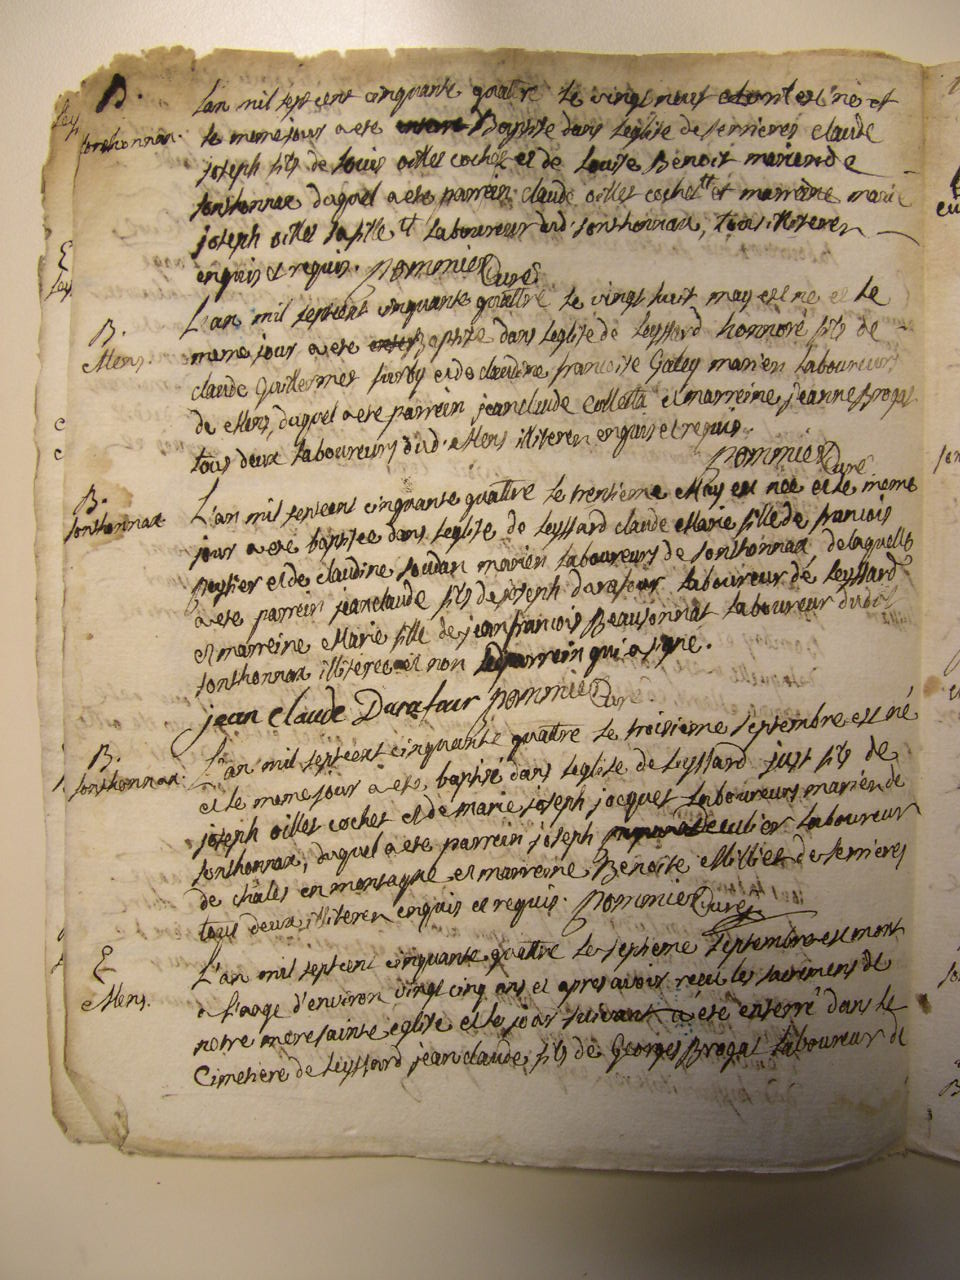 B.
sonthonnax.
Lan mil sept cent cinquante quatre le vingt neuf est né et
le meme jour a ete Baptisé dans leglise de serrieres claude
joseph fils de louis oillet cochet et de louise Benoit marien de
sonthonnax duquel a ete parrein claude oillet cochet et marreine marie
joseph oillet sa fille laboureur dud. sonthonnax, tous illiteren
enquis et requis. nommier Curé
B.
Mens.
L'an mil septcent cinquante quattre le vingt huit may est ne et le
meme jour a ete Baptisé dans leglise de leyssard honnoré fils de
claude Guillermet furby et de claudine francoise Galley marien laboureurs
de Mens, duquel a ete parrein jean claude colletta et marreine jeanne Brogat
tous deux laboureurs dud. Mens illiteren enquis et requis.
nommier Curé
B.
sonthonnax
L'an mil septcent cinquante quattre le trentieme May est née et le meme
jour a ete baptisée dans leglise de leyssard claude Marie fille de francois
et de claudine soudan marien laboureurs de sonthonnax delaquelle
a ete parrein jean claude fils de joseph darafour laboureur de leyssard
et marreine Marie fille de jean francois Beausonnat laboureur dudit
sonthonnax illiteree et non le parrein qui a signe.
jean claude Darafour nommier Curé.
B.
sonthonnax.
L'an mil septcent cinquante quattre le troisieme septembre est né
et le meme jour a ete baptisé dans leglise de leyssard just fils de
joseph oillet cochet et de marie joseph jacquet laboureurs marien de
sonthonnax, duquel a ete parrein joseph cullier laboureur
de châles en montagne et marreine Benoite Milliet de serrieres
tous deux illiteren enquis et requis. nommier Curé
E
Mens.
L'an mil septcent cinquante quattre le septieme septembre est mort
a l'aage d'environ vingt cinq ans et apres avoir recu les sacremens de
notre mere sainte eglise et le jour suivant a été enterré dans le
Cimetiere de leyssard jean claude fils de Georges Brogat laboureur de